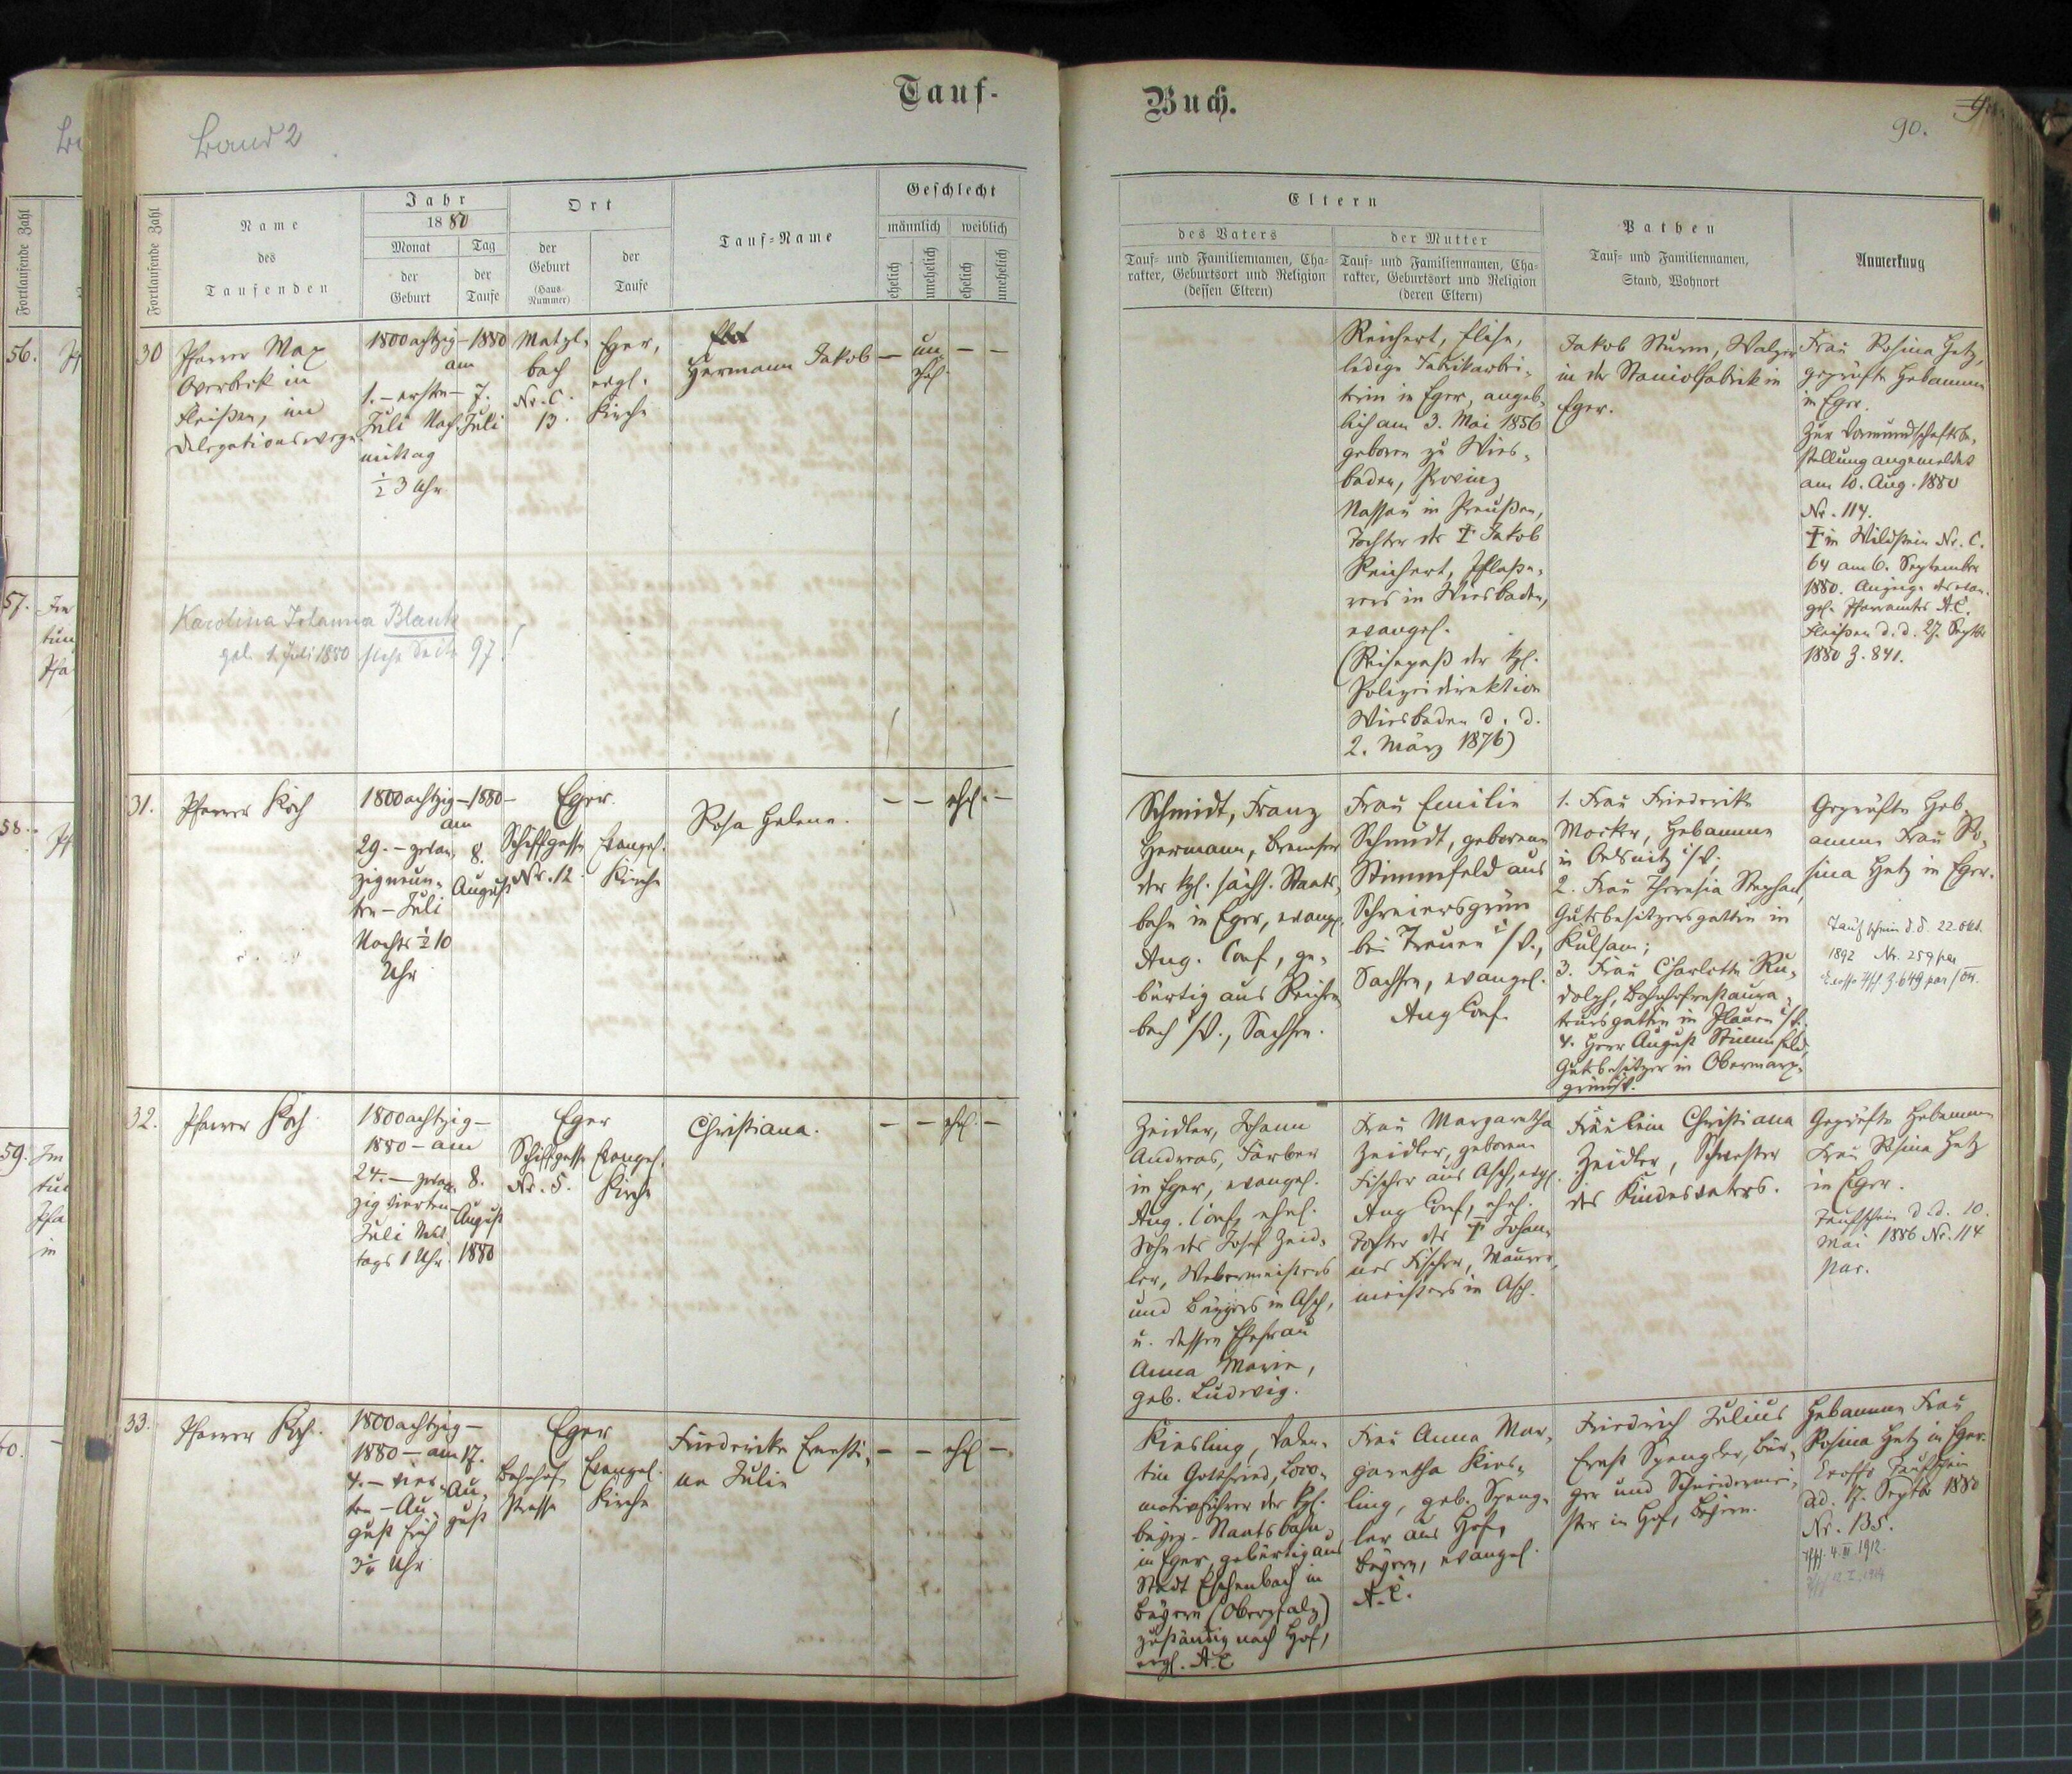 Tauf-
Buch.
Band 2
90.
Fortlaufende Zahl
Name
des
Taufenden
Jahr
1880
Monat
der
Geburt
Tag
der
Taufe
Ort
der
Geburt
(Haus-
Nummer)
der
Taufe
Tauf-Name
Geschlecht
männlich
weiblich
ehelich
unehelich
ehelich
unehelich
Eltern
des Vaters
Tauf- und Familiennamen, Cha-
rakter, Geburtsort und Religion
(dessen Eltern)
der Mutter
Tauf- und Familiennamen, Cha-
rakter, Geburtsort und Religion
(deren Eltern)
Pathen
Tauf- und Familiennamen,
Stand, Wohnort
Anmerkung
Fortlaufende Zahl
56.
57.
58.
59.
30
Pfarrer Max
Overbeck in
Fleißen, im
Delegationswege
1800achtzig – 1880
am
1. – ersten – 7.
Juli Nach- Juli
mittag
½ 3 Uhr
Matzl-
bach
Nr. C.
13.
Eger,
evgl.
Kirche
Hermann Jakob
– un-
ehel. – –
Reichert, Elise,
ledige Fabrikarbei-
terin in Eger, angeb-
lich am 3. Mai 1856
geboren zu Wies-
baden, Provinz
Nassau in Preußen,
Tochter des † Jakob
Reichert, Pflaste-
rers in Wiesbaden,
evangel.
(Reisepaß der kgl.
Polizeidirektion
Wiesbaden d. d.
2. März 1876)
Jakob Sturm, Walzer
in der Staniolfabrik in
Eger.
Frau Rosina Hetz,
geprüfte Hebamme
in Eger.
Zur Vormundschaftsbe-
stellung angemeldet
am 10. Aug. 1880
Nr. 114.
† in Wildstein Nr. C.
64 am 6. September
1880. Anzeige des evan-
gel. Pfarramtes A.C.
Fleißen d. d. 27. Septbr
1880 Z. 841.
Karolina Johanna Blank
geb. 1. Juli 1880 siehe Seite 97!
31.
Pfarrer Koch
1800achtzig – 1880 –
am
29. – zwan- 8.
zigneun- August
ten – Juli
Nachts ½ 10
Uhr
Eger.
Schiffgasse
Nr. 12.
Evangel.
Kirche
Rosa Helene.
– – ehel. –
Schmidt, Franz
Hermann, Bremser
der kgl. sächs. Staats-
bahn in Eger, evangel.
Aug. Conf, ge-
bürtig aus Reichen-
bach i/V., Sachsen.
Frau Emilie
Schmidt, geborene
Stimmfeld aus
Schreiersgrün
bei Treuen i/V.,
Sachsen, evangel.
Aug Conf.
1. Frau Friederike
Mocker, Hebamme
in Oelsnitz i/V;
2. Frau Theresia Stephan,
Gutsbesitzersgattin in
Kulsam;
3. Frau Charlotte Ru-
dolph, Bahnhofrestaura-
teursgattin in Plauen i/V.
4. Herr August Stimmfeld,
Gutsbesitzer in Obermarx-
grün i/V.
Geprüfte Heb-
amme Frau Ro-
sina Hetz in Eger.
Taufschein d. d. 22. Okt.
1892 Nr. 259
32.
Pfarrer Koch.
1800achtzig –
1880 – am
24. – zwan- 8.
zig vierten – August
Juli Mit-
tags 1 Uhr. 1880
Eger
Schiffgasse
Nr. 5.
Evangel.
Kirche
Christiana.
– – ehel. –
Zeidler, Johann
Andreas, Färber
in Eger, evangel.
Aug. Conf, ehel.
Sohn des Josef Zeid-
ler, Webermeisters
und Bürgers in Asch,
u. dessen Ehefrau
Anna Marie,
geb. Ludwig.
Frau Margaretha
Zeidler, geborene
Fischer aus Asch, evgl.
Aug Conf, ehel.
Tochter des † Johan-
nes Fischer, Maurer-
meisters in Asch.
Fräulein Christiana
Zeidler, Schwester
des Kindesvaters.
Geprüfte Hebamme
Frau Rosina Hetz
in Eger.
Taufschein d. d. 10.
Mai 1886 Nr. 114
par.
33.
Pfarrer Koch.
1800achtzig –
1880 – am 17.
4. – vier- Au-
ten – Au- gust
gust früh
Uhr
Eger
Bahnhof-
strasse
Evangel.
Kirche
Friedericke Ernesti-
ne Julie
– – ehel –
Kiesling, Valen-
tin Gottfried, Loco-
motivführer der kgl.
bayer. Staatsbahn
in Eger, gebürtig aus
Stadt Eschenbach in
Bayern (Oberpfalz)
zuständig nach Hof,
evgl. A.C
Frau Anna Mar-
garetha Kies-
ling, geb. Speng-
ler aus Hof,
Bayern, evangel.
A.C.
Friedrich Julius
Ernst Spengler, Bür-
ger und Schneidermei-
ster in Hof, Bayern.
Hebamme Frau
Rosina Hetz in Eger.
Exoffo Taufschein
dd. 17. Septbr 1880
Nr. 135.
4. III. 1912.